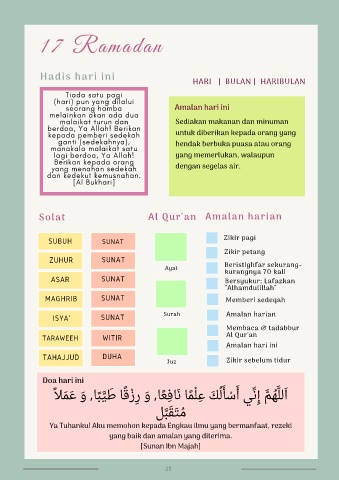 17 Ramadan
Hadis hari ini
HARI | BULAN | HARIBULAN
Tiada satu pagi
(hari) pun yang dilalui
seorang hamba
melainkan akan ada dua
malaikat turun dan
berdoa, Ya Allah! Berikan
kepada pemberi sedekah
ganti (sedekahnya),
manakala malaikat satu
lagi berdoa, Ya Allah!
Berikan kepada orang
yang menahan sedekah
dan kedekut kemusnahan.
[Al Bukhari]
Amalan hari ini
Sediakan makanan dan minuman
untuk diberikan kepada orang yang
hendak berbuka puasa atau orang
yang memerlukan, walaupun
dengan segelas air.
Solat
SUBUH SUNAT
ZUHUR SUNAT
ASAR SUNAT
MAGHRIB SUNAT
ISYA' SUNAT
TARAWEEH WITIR
TAHAJJUD DUHA
Al Qur'an
Ayat
Surah
Juz
Amalan harian
Zikir pagi
Zikir petang
Beristighfar sekurang-
kurangnya 70 kali
Bersyukur: Lafazkan
"Alhamdulillah"
Memberi sedeqah
Amalan harian
Membaca & tadabbur
Al Qur'an
Amalan hari ini
Zikir sebelum tidur
Doa hari ini
اَللَّهُمَّ إِنِّي أَسْأَلُكَ عِلْمًا نَافِعًا, وَ رِزْقًا طَيِّبًا, وَ عَمَلاً
مُتَقَبَّل
Ya Tuhanku! Aku memohon kepada Engkau ilmu yang bermanfaat, rezeki
yang baik dan amalan yang diterima.
[Sunan Ibn Majah]